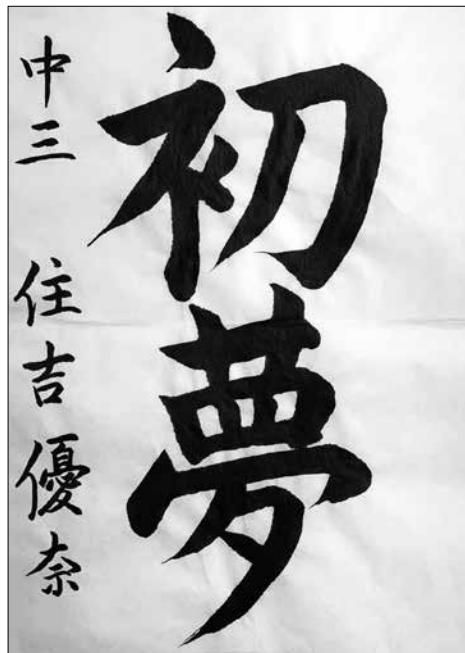 初夢
中三 住吉優奈